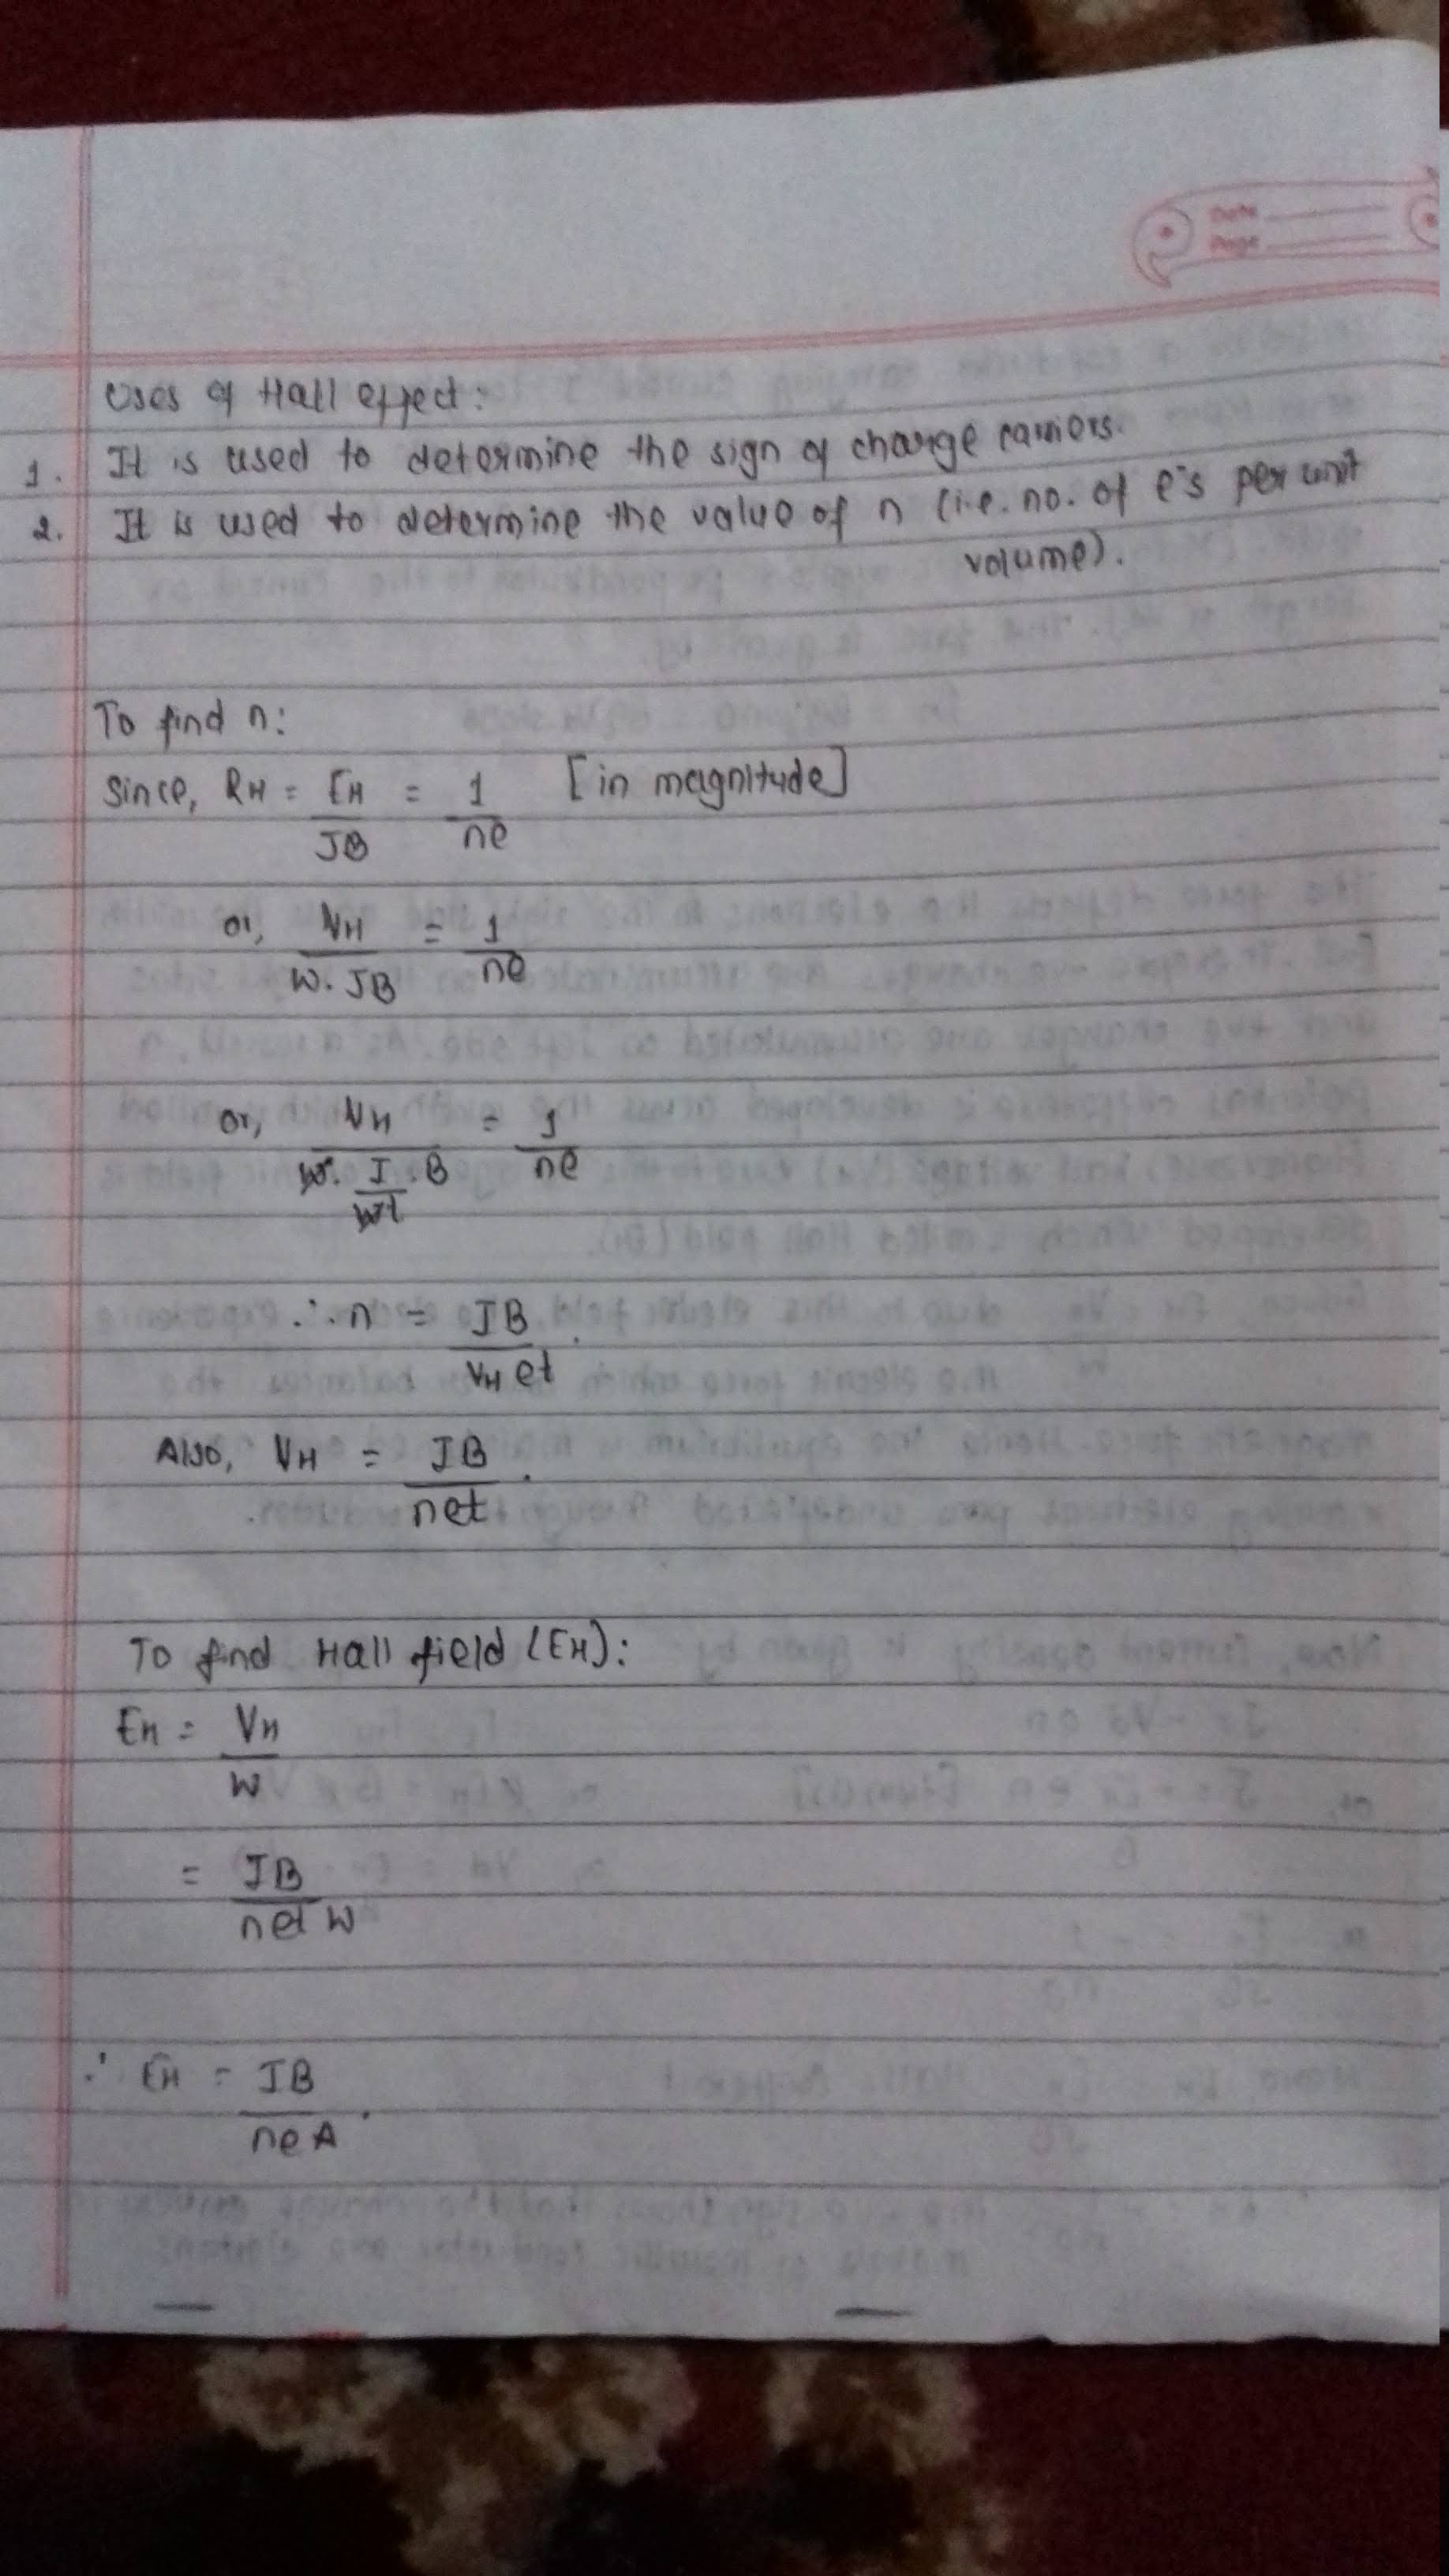 Date
Page
Uses of Hall effect:
1. It is used to determine the sign of charge carriers.
2. It is used to determine the value of n (i.e. no. of e⁻s per unit
volume).
To find n:
Since, RH = EH/JB = 1/ne [in magnitude]
or, VH/w.JB = 1/ne
or, VH/(w. I/wt .B) = 1/ne
∴ n = IB/VHet.
Also, VH = IB/net.
To find Hall field (EH):
EH = VH/w
= IB/netw
∴ EH = IB/neA.